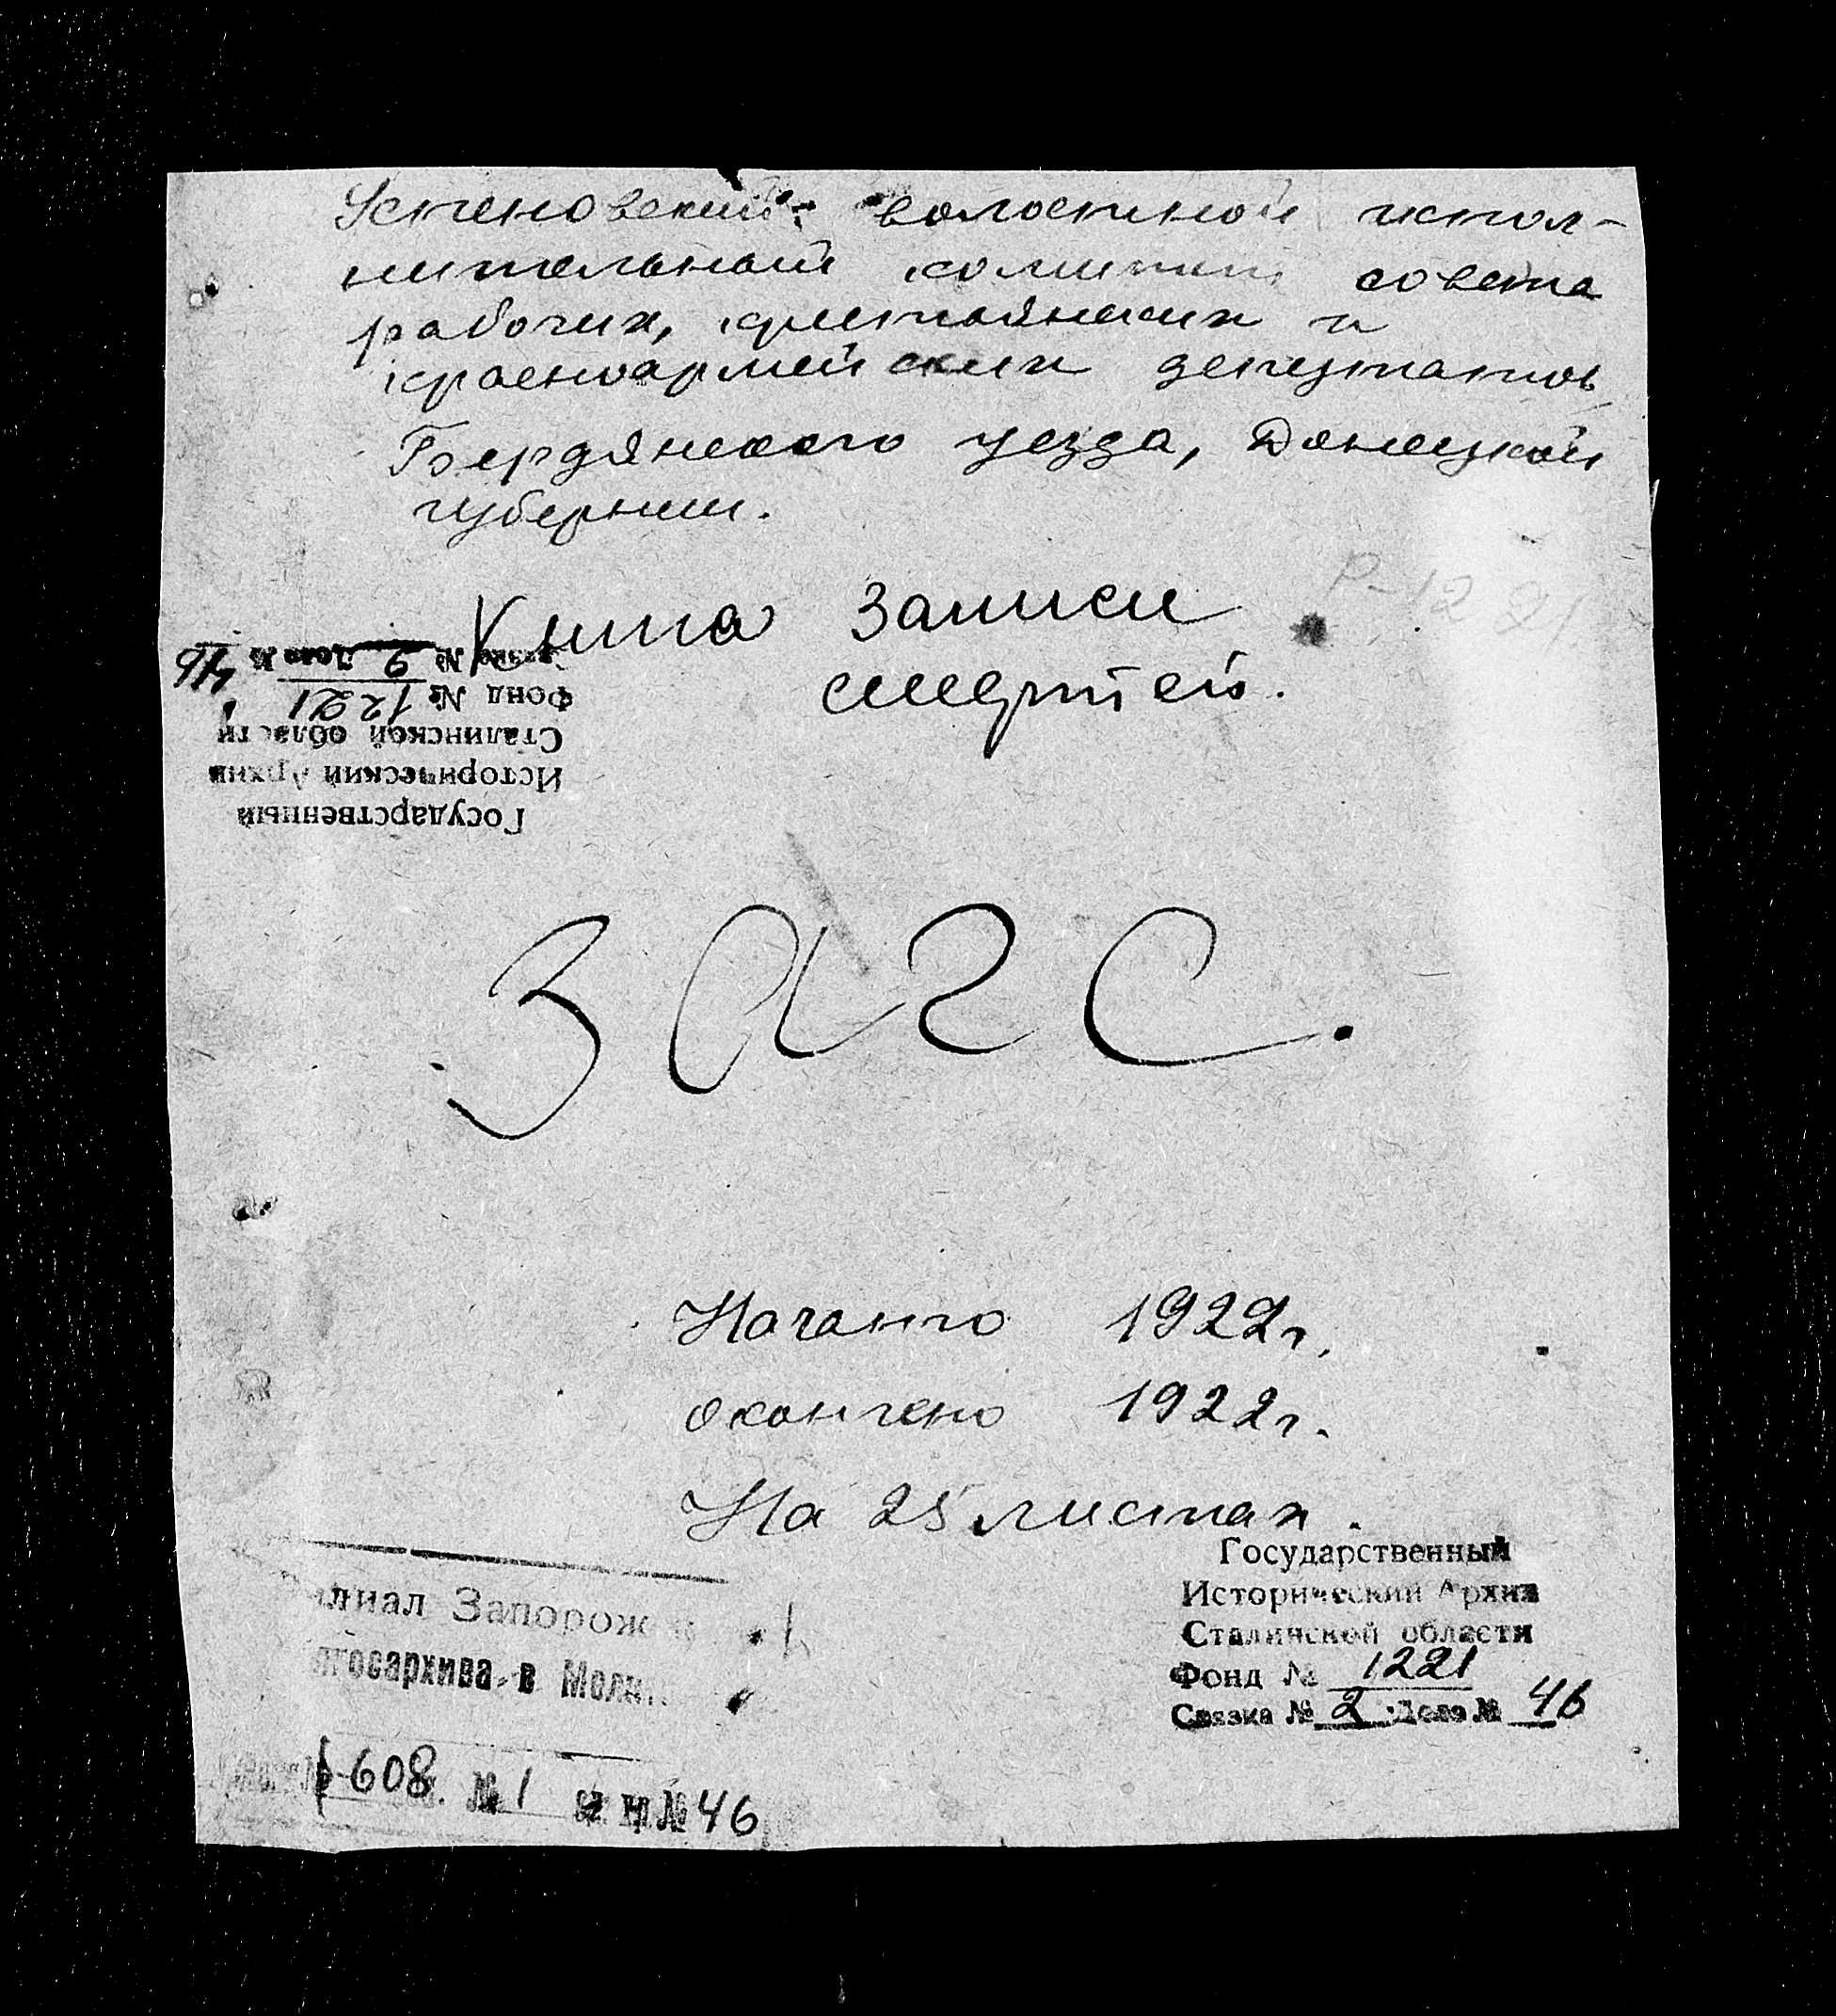 Успеновский волостной испол-
нительный комитет совета
рабочих, крестьянских и
красноармейских депутатов
Бердянского уезда, Донецкой
губернии.
Р-1221
Книга записи
смертей.
Государственный
Исторический Архив
Сталинской области
Фонд № 1221
Связка № 2 Дело № 46
ЗАГС.
Начато 1922г.
окончено 1922г.
На 25 листах.
Государственный
Исторический Архив
Сталинской области
Фонд № 1221
Связка № 2 Дело № 46
илиал Запорож
лгосархива в Мели
608 № 1 № 46